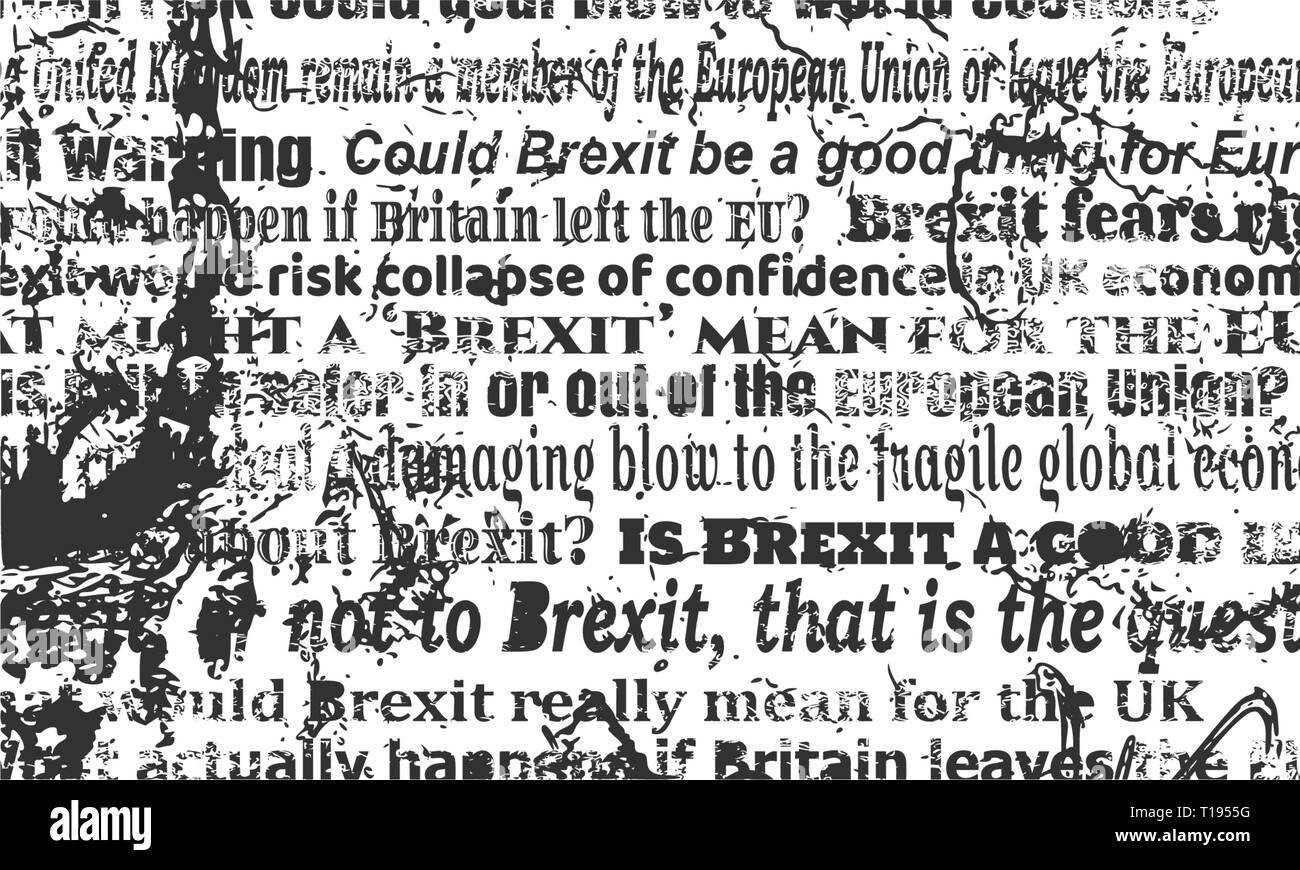 risk could deal blow to world economy
United Kingdom remain a member of the European Union or leave the European
warning Could Brexit be a good thing for Eur
happen if Britain left the EU? Brexit fears ri
exit would risk collapse of confidence in UK econom
AT MIGHT A ‘BREXIT’ MEAN FOR THE EU
safer in or out of the European Union?
deal a damaging blow to the fragile global econ
about Brexit? IS BREXIT A GOOD
not to Brexit, that is the quest
would Brexit really mean for the UK
actually happen if Britain leaves the
alamy
Image ID: T1955G
www.alamy.com